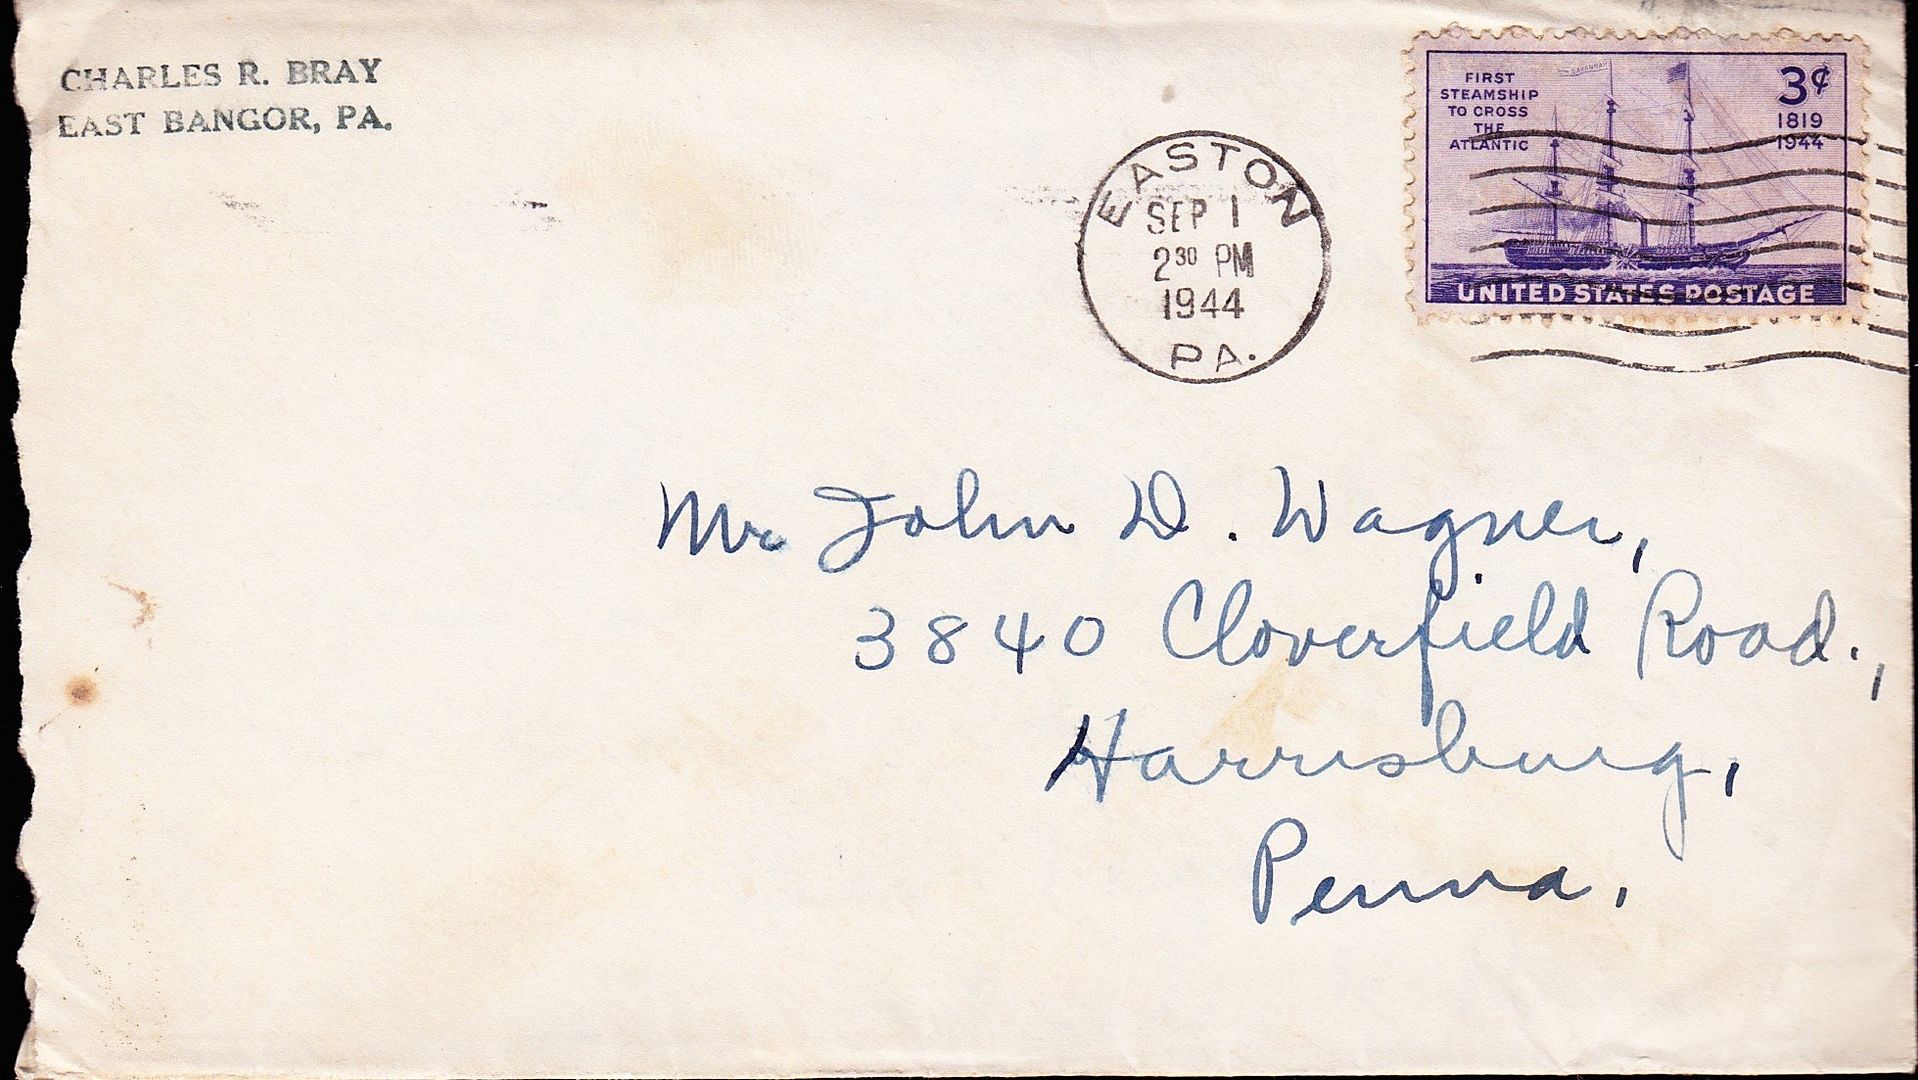 CHARLES R. BRAY
EAST BANGOR, PA.
EASTON
SEP 1
2 30 PM
1944
PA.
FIRST
STEAMSHIP
TO CROSS
THE
ATLANTIC
SAVANNAH
3¢
1819
1944
UNITED STATES POSTAGE
Mr. John D. Wagner,
3840 Cloverfield Road.,
Harrisburg,
Penna.